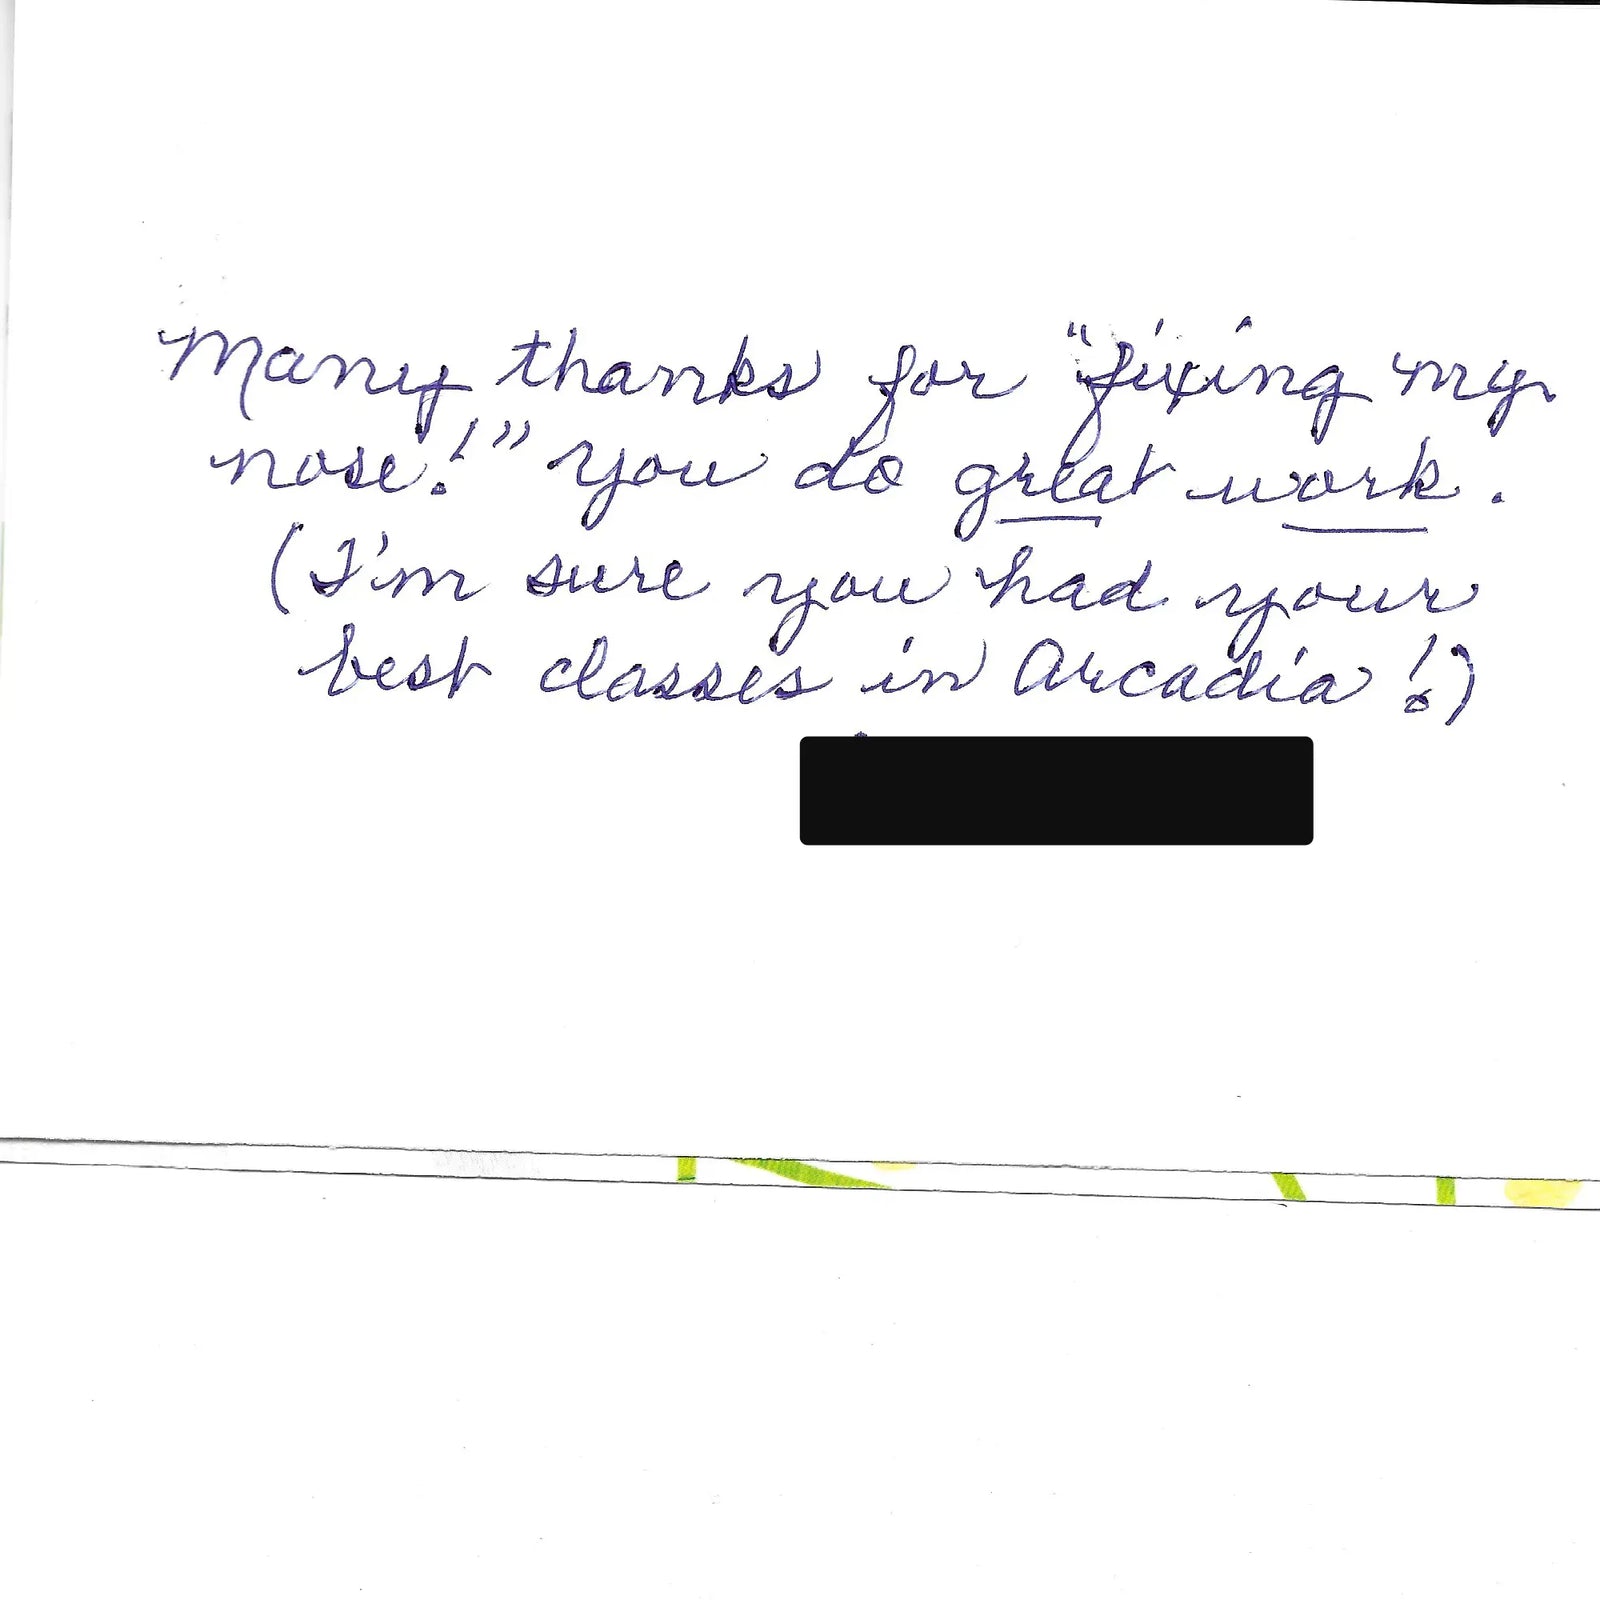 Many thanks for "fixing my
nose!" You do great work.
(I'm sure you had your
best classes in Arcadia!)